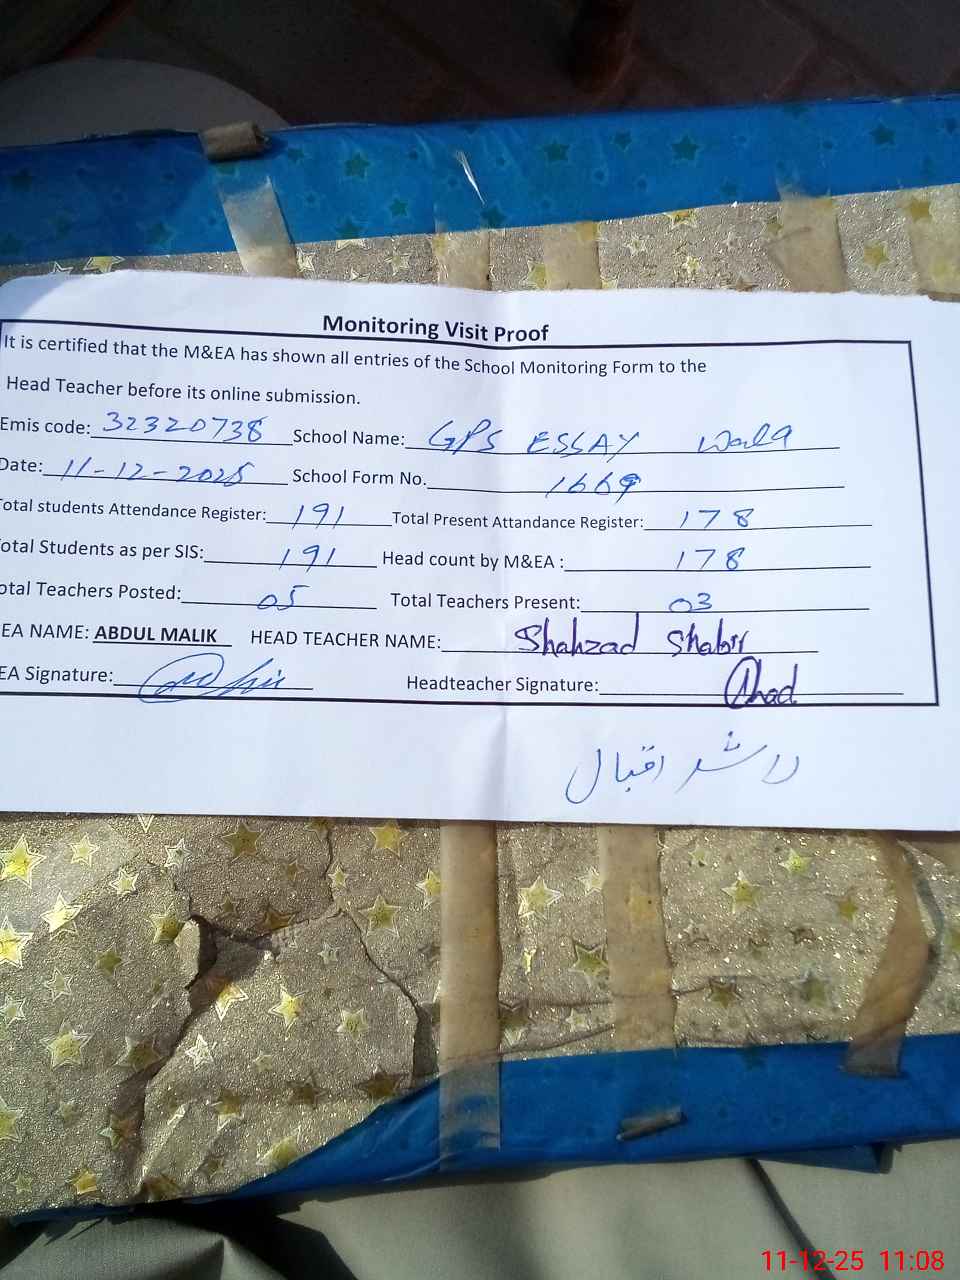 Monitoring Visit Proof
It is certified that the M&EA has shown all entries of the School Monitoring Form to the
Head Teacher before its online submission.
Emis code: 32320738 School Name: GPS ESSAY Wala
Date: 11-12-2025 School Form No. 1669
otal students Attendance Register: 191 Total Present Attandance Register: 178
otal Students as per SIS: 191 Head count by M&EA : 178
otal Teachers Posted: 05 Total Teachers Present: 03
EA NAME: ABDUL MALIK HEAD TEACHER NAME: Shahzad Shabir
EA Signature: Headteacher Signature:
اقبال
11-12-25 11:08